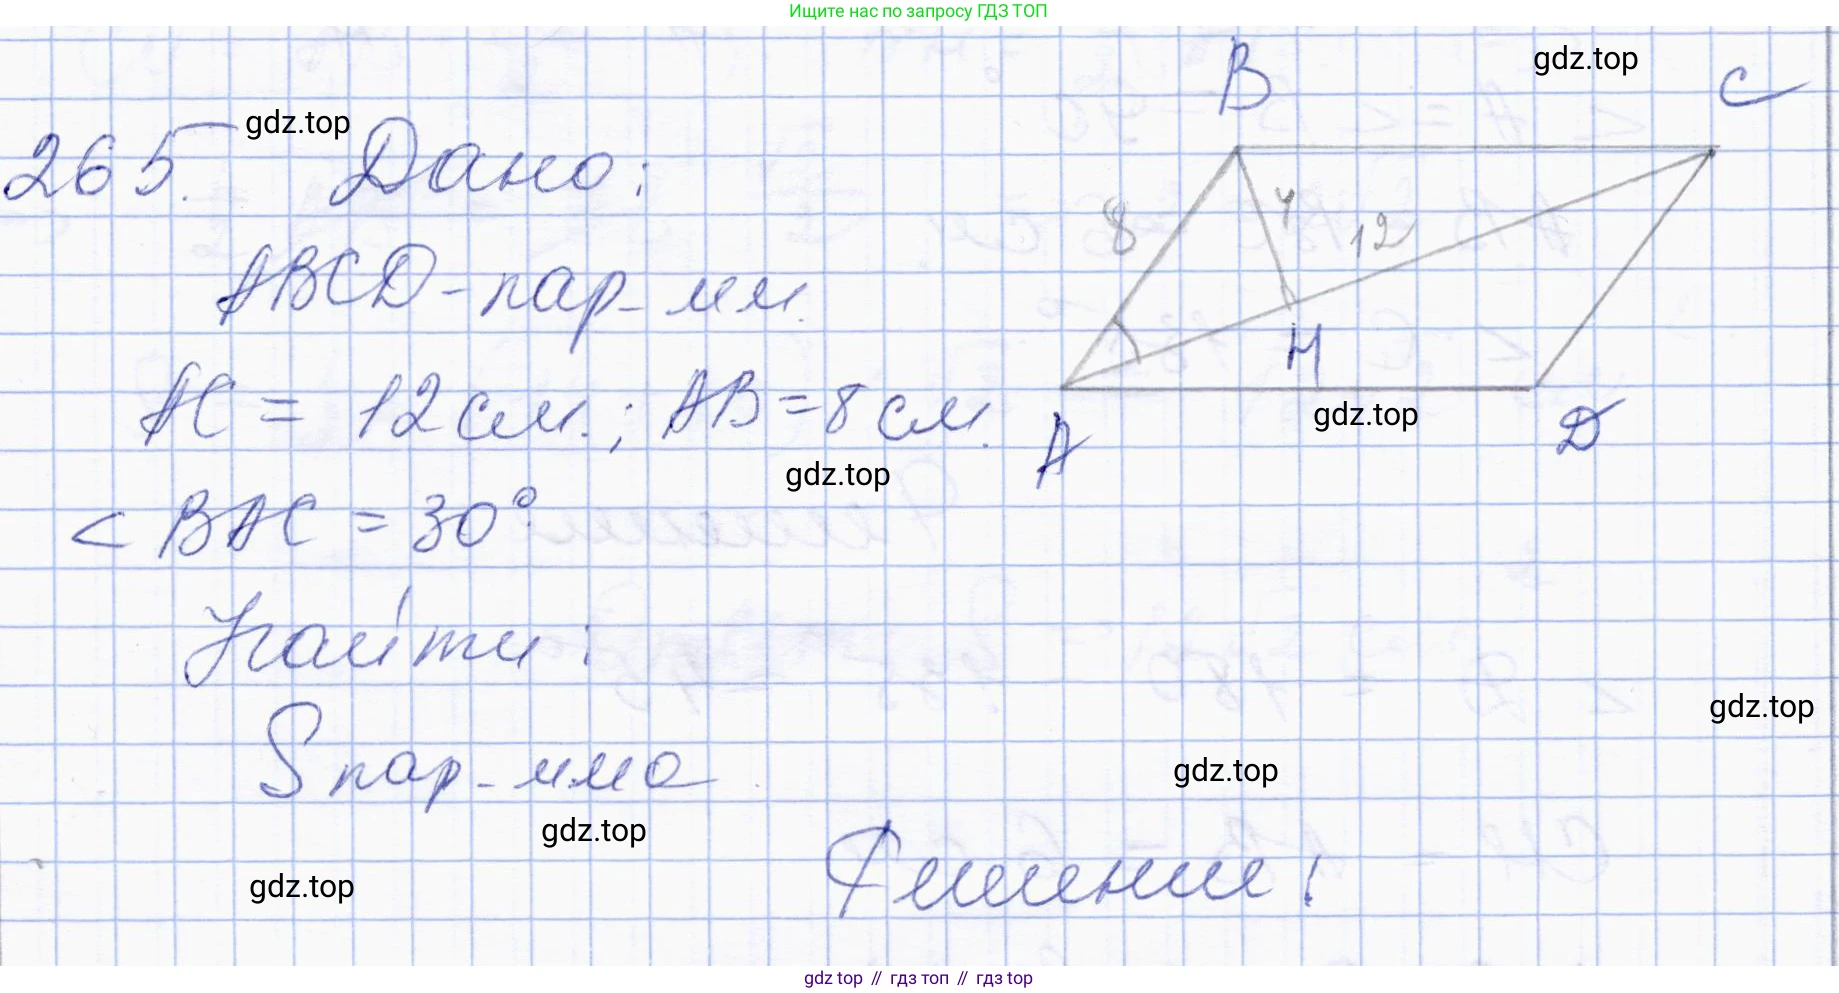 Ищите нас по запросу ГДЗ ТОП
B
C
gdz.top
265. Дано:
gdz.top
8
4
12
ABCD-пар-мм.
H
AC = 12 см.; AB = 8 см.
gdz.top
A
D
gdz.top
< BAC = 30°
Найти:
gdz.top
S пар-мма
gdz.top
gdz.top
Решение:
gdz.top
gdz top // гдз топ // гдз top